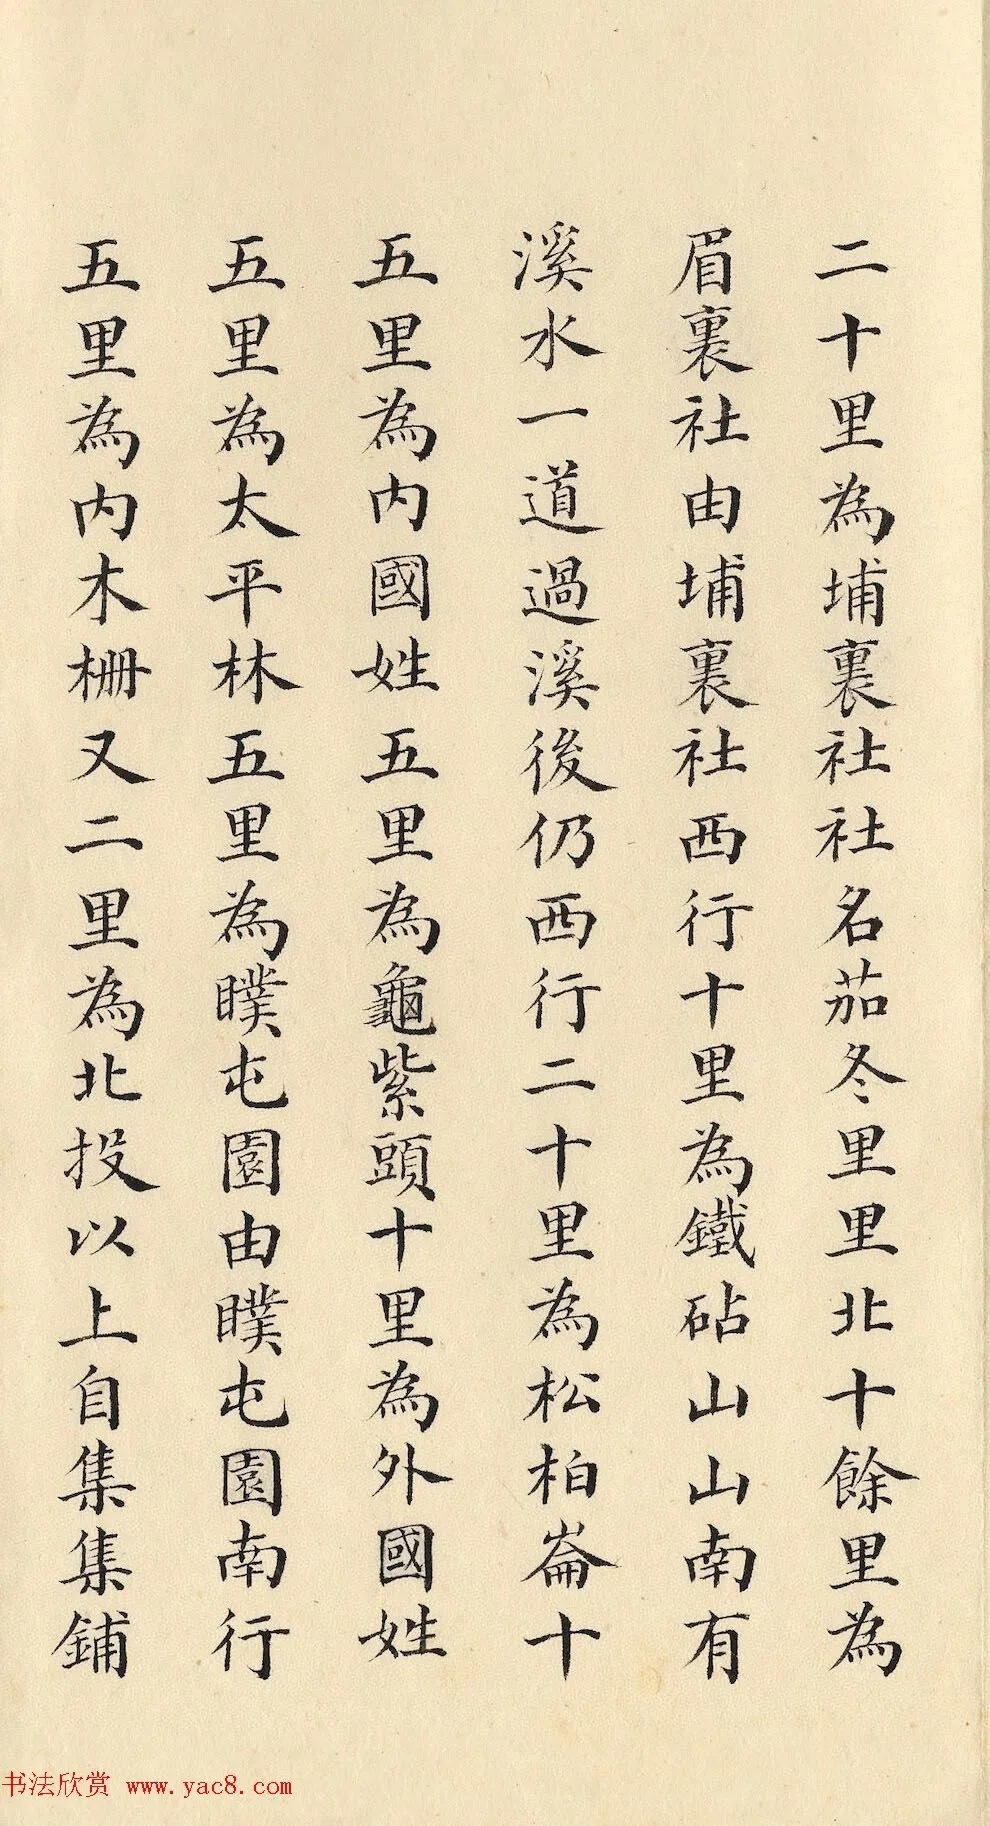 二十里為埔裏社社名茄冬里里北十餘里為
眉裏社由埔裏社西行十里為鐵砧山山南有
溪水一道過溪後仍西行二十里為松柏崙十
五里為內國姓五里為龜紫頭十里為外國姓
五里為太平林五里為瞨屯園由瞨屯園南行
五里為內木栅又二里為北投以上自集集鋪
书法欣赏 www.yac8.com